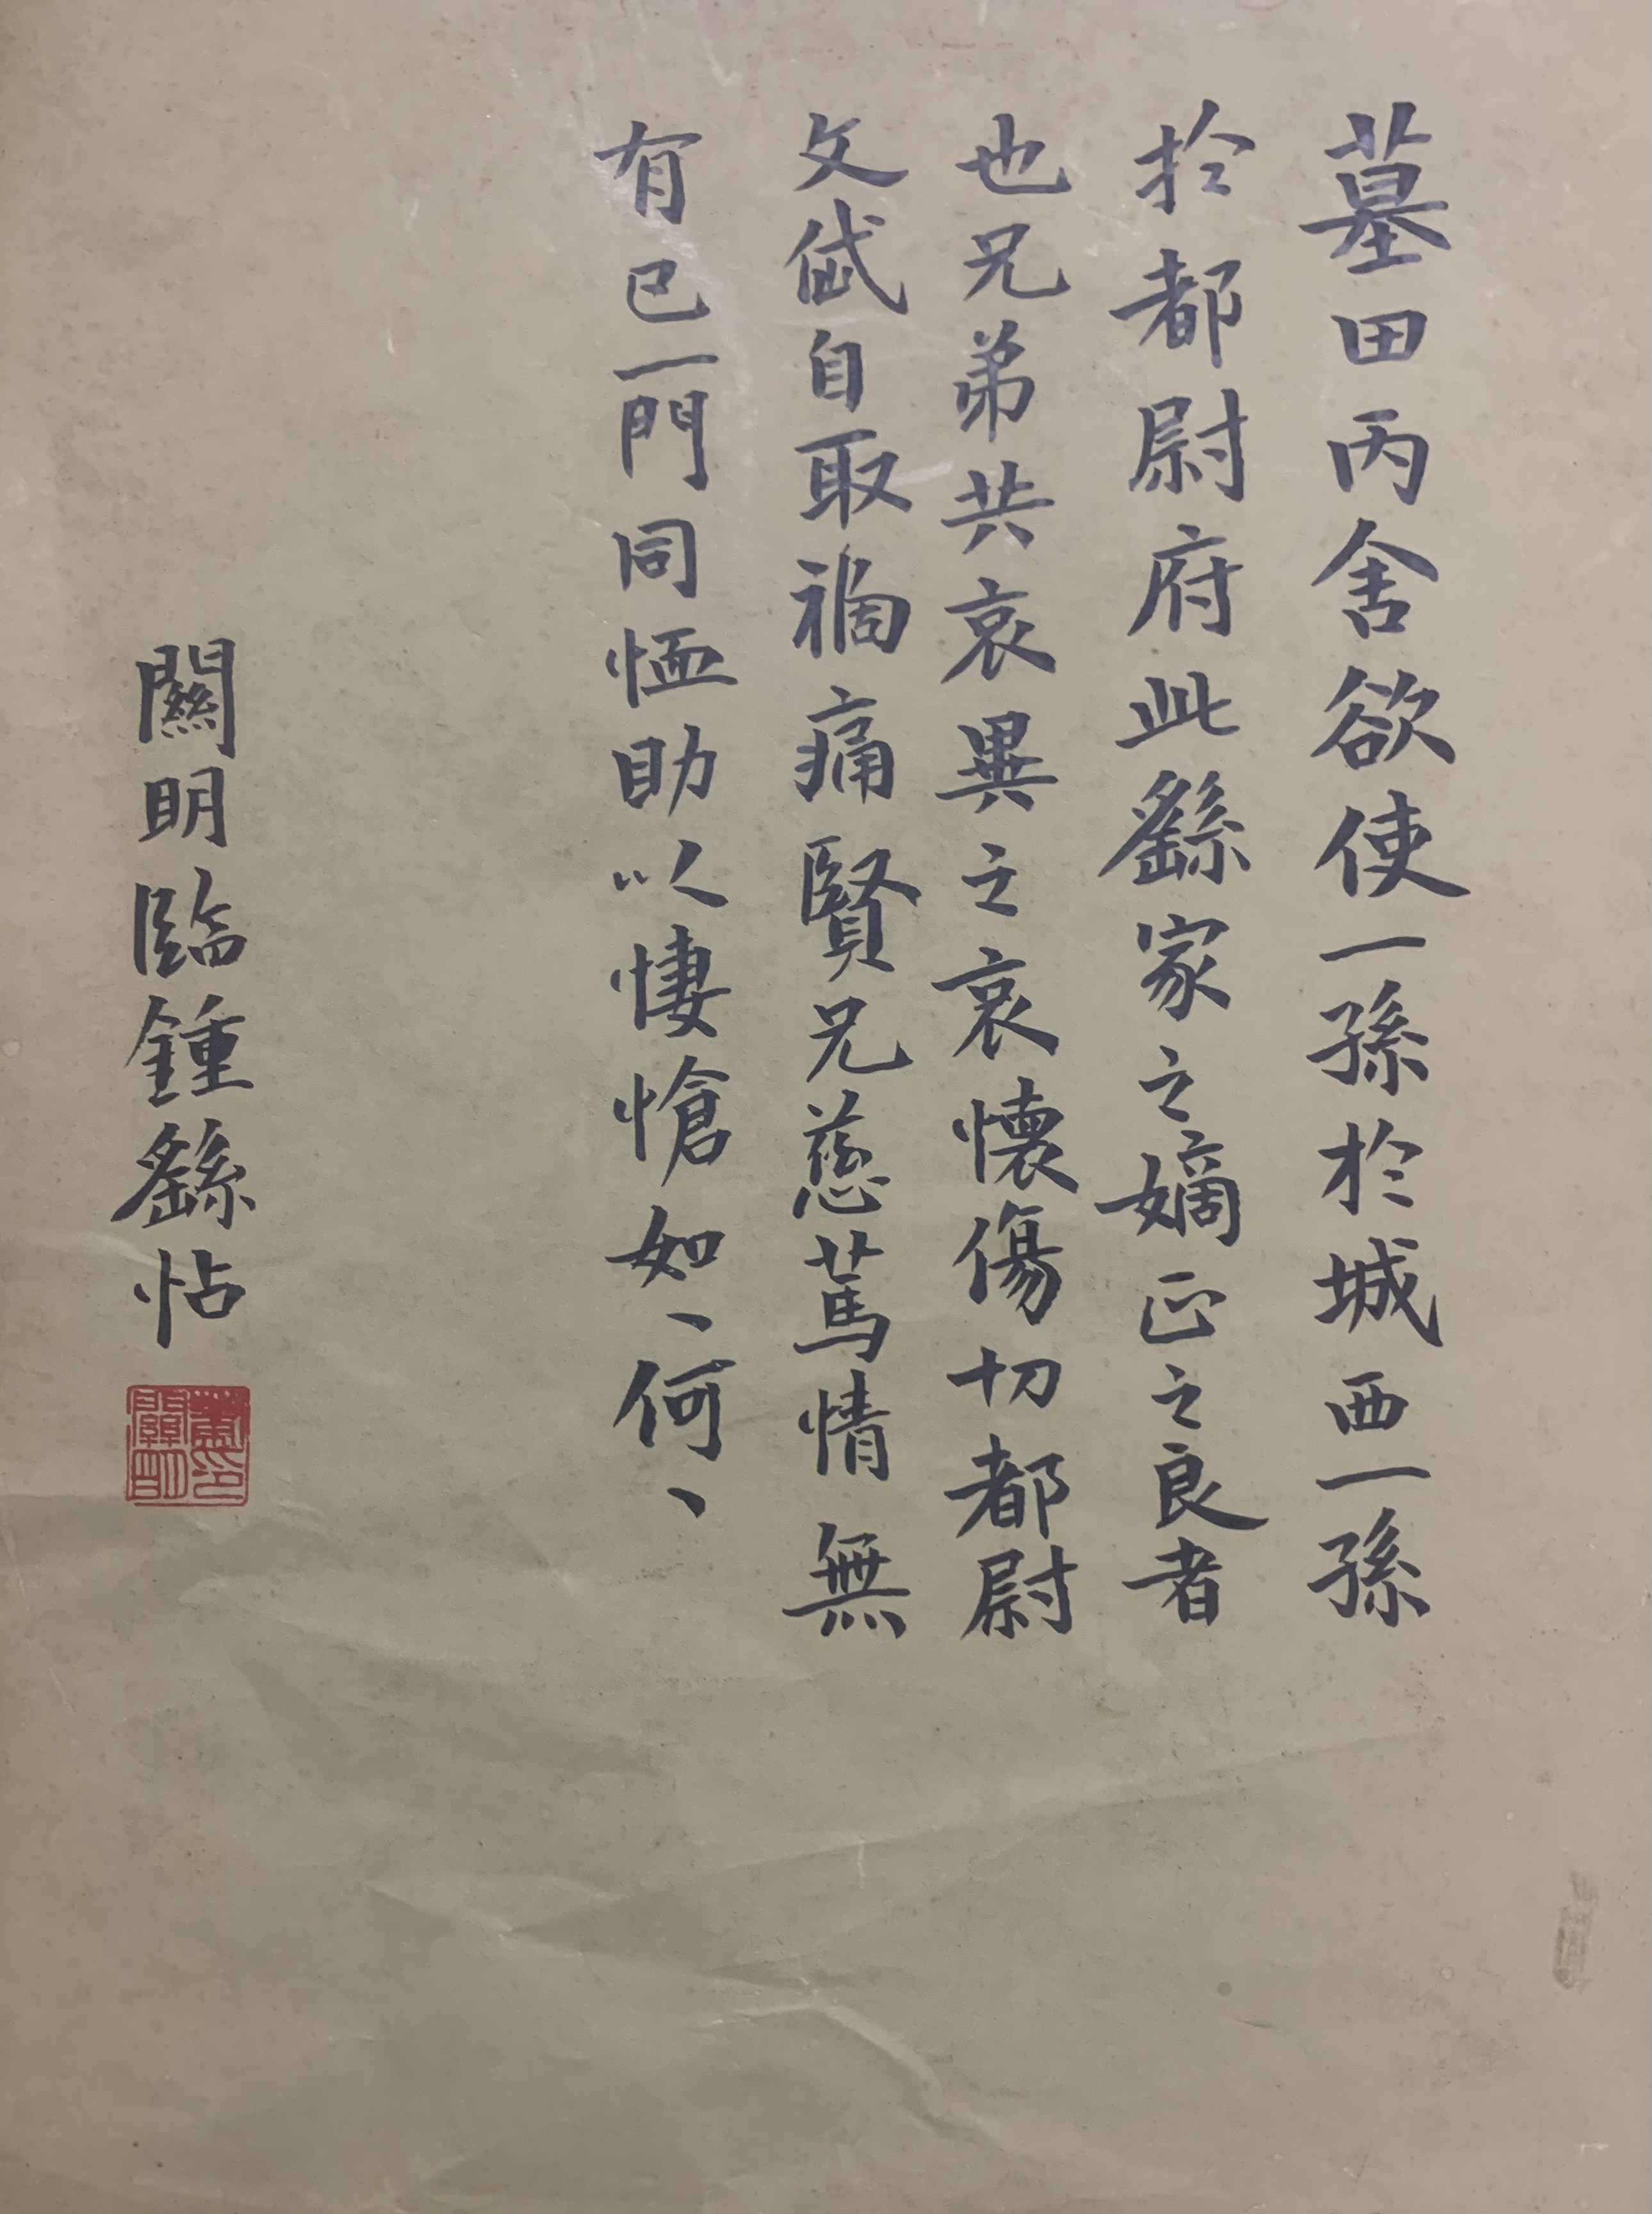 墓田丙舍欲使一孫於城西一孫
於都尉府此繇家之嫡正之良者
也兄弟共哀異之哀懷傷切都尉
文岱自取禍痛賢兄慈篤情無
有已一門同恤助以悽愴如、何、
關明臨鍾繇帖
蕭印
關明